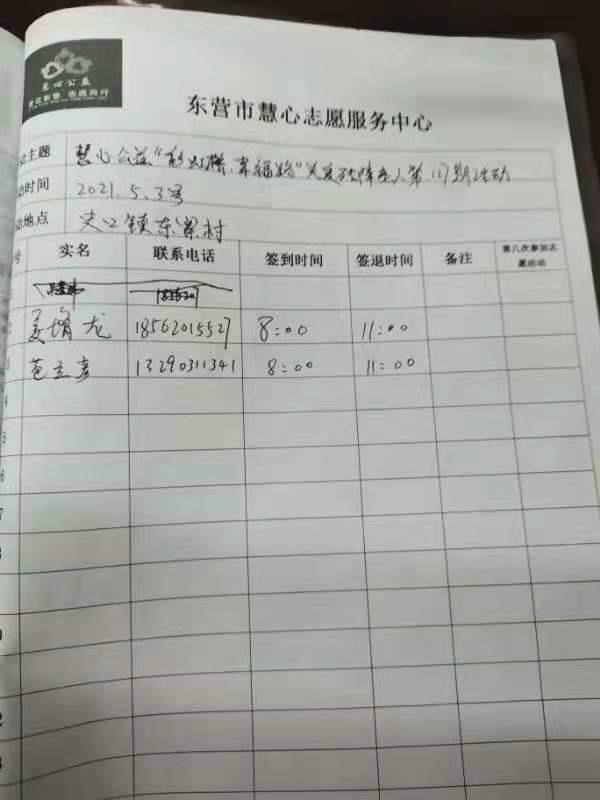 慧心公益
东营市慧心志愿服务中心
主题 慧心公益"彩虹桥,幸福路"关爱残障老人第 期活动
动时间 2021.5.3号
动地点 史口镇东 村
号 实名 联系电话 签到时间 签退时间 备注 第几次参加志愿活动
姜增龙 18562015527 8:00 11:00
苍立彦 13290311341 8:00 11:00
4
5
6
7